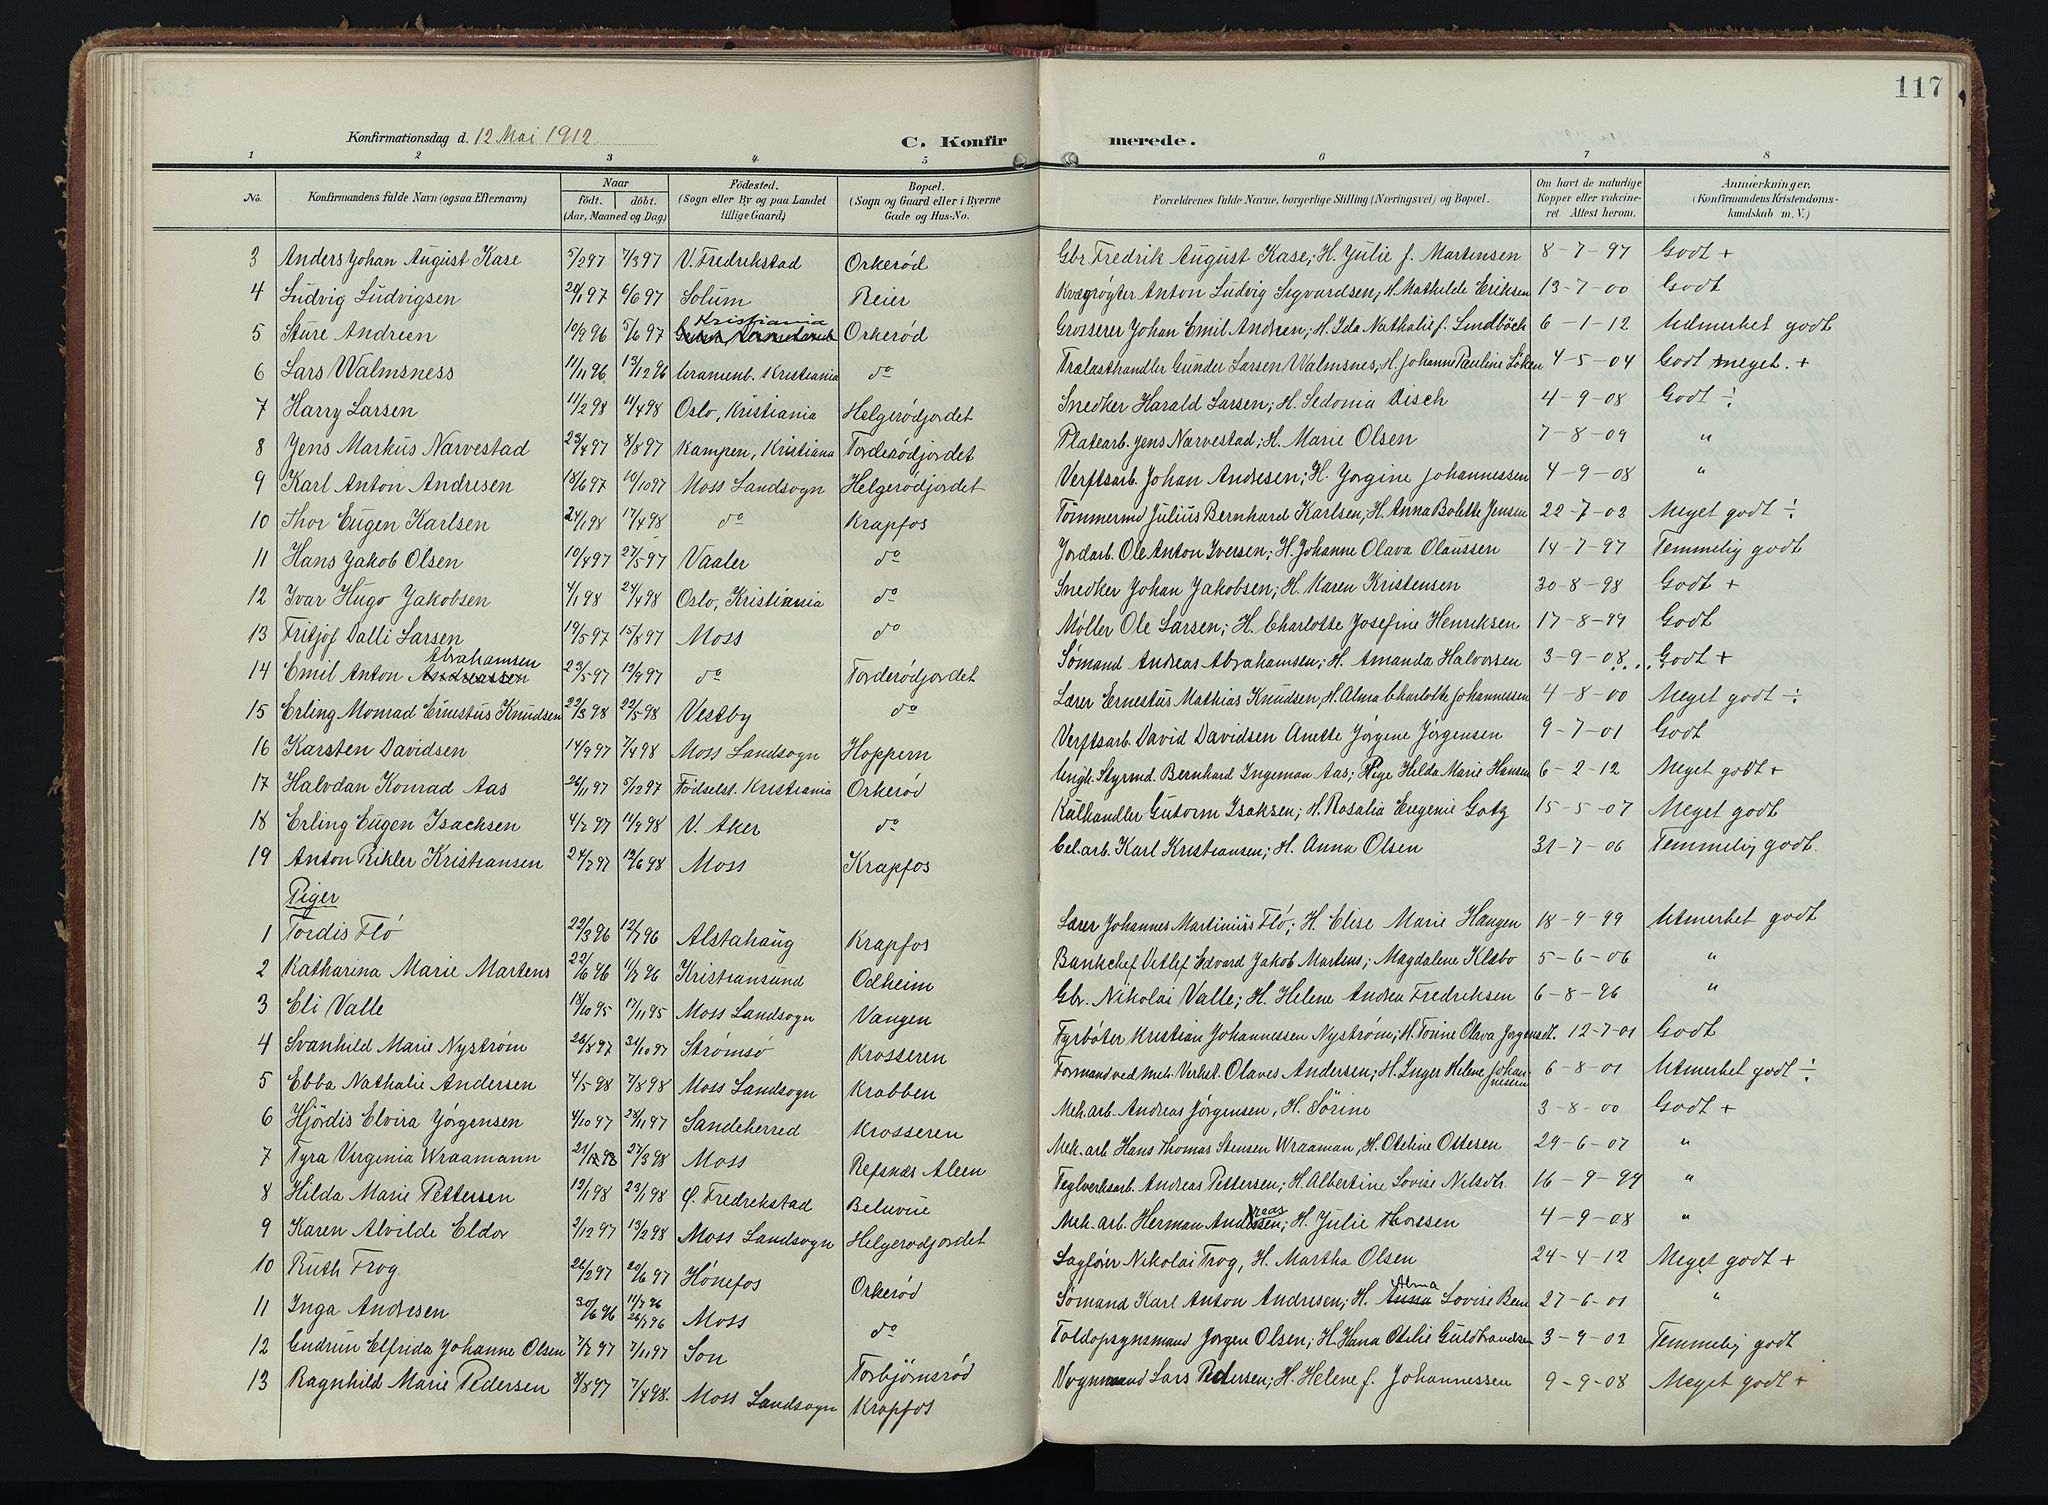 117
Konfirmationsdag d. 12 Mai 1912.
C. Konfirmerede.
1 2 3 4 5 6 7 8
No. Konfirmandens fulde Navn (ogsaa Efternavn) Naar födt. döbt. (Aar, Maaned og Dag) Födested. (Sogn eller By og paa Landet tillige Gaard) Bopæl. (Sogn og Gaard eller i Byerne Gade og Hus-No. Forældrenes fulde Navne, borgerlige Stilling (Næringsvei) og Bopæl. Om havt de naturlige Kopper eller vakcineret Attest herom. Anmærkninger. (Konfirmandens Kristendomskundskab m. V.)
3 Anders Johan August Kase 5/2 97 7/3 97 V. Fredrikstad Orkerød Gbr. Fredrik August Kase; H. Julie f. Martinsen 8-7-97 Godt +
4 Ludvig Ludvigsen 20/1 97 6/6 97 Solum Reier Kvægrøgter Anton Ludvig Sigvardsen; H. Mathilde Eriksen 13-7-00 Godt
5 Sture Andreen 10/9 96 5/6 97 Kristiania Orkerød Grosserer Johan Emil Andreen; H. Ida Nathalie f. Lindböck 6-1-12 Utmerket godt
6 Lars Walmsness 11/11 96 13/12 96 Uranienb. Kristiania do Trælasthandler Gunder Larsen Walmsnes, H. Johanne Pauline Löken 4-5-04 Godt meget. +
7 Harry Larsen 11/2 98 11/4 98 Oslo, Kristiania Helgerødjordet Snedker Harald Larsen; H. Sedonia Disch 4-9-08 Godt ÷
8 Jens Markus Narvestad 23/4 97 8/8 97 Kampen, Kristiana Torderödjordet Platearb. Jens Narvestad; H. Marie Olsen 7-8-09 "
9 Karl Anton Andresen 18/6 97 10/10 97 Moss Landsogn Helgerödjordet Verftsarb. Johan Andresen; H. Jørgine Johannessen 4-9-08 "
10 Thor Eugen Karlsen 24/1 98 17/4 98 do Krapfos Tömmermd Julius Bernhard Karlsen, H. Anna Bolette Jensen 22-7-02 Meget godt ÷
11 Hans Jakob Olsen 10/4 97 27/5 97 Vaaler do Jordarb. Ole Anton Iversen; H. Johanne Olava Olaussen 14-7-97 Temmelig godt
12 Ivar Hugo Jakobsen 4/1 98 24/4 98 Oslo, Kristiania do Snedker Johan Jakobsen; H. Karen Kristensen 30-8-98 Godt +
13 Fritjof Dalli Larsen 19/5 97 15/8 97 Moss do Møller Ole Larsen; H. Charlotte Josefine Henriksen 17-8-99 Godt
14 Emil Anton Andreassen Abrahamsen 23/5 97 12/9 97 do Torderødjordet Sømand Andreas Abrahamsen; H. Amanda Halvorsen 3-9-08 Godt +
15 Erling Monrad Ernestus Knudsen 22/3 98 22/5 98 Vestby do Lærer Ernestus Mathias Knudsen, H. Alma Charlotte Johannessen 4-8-00 Meget godt ÷
16 Karsten Davidsen 14/9 97 7/4 98 Moss Landsogn Hoppern Verftsarb. David Davidsen Anette Jørgene Jørgensen 9-7-01 Godt
17 Halvdan Konrad Aas 26/11 97 5/12 97 Födselst. Kristiania Orkerød Ungk. Styrmd. Bernhard Ingeman Aas; Pige Hilda Marie Hansen 6-2-12 Meget godt +
18 Erling Eugen Isachsen 4/7 97 11/9 98 V. Aker do Kulhandler Gutorm Isaksen; H. Rosalia Eugenie Gotz 15-5-07 Meget godt
19 Anton Rikler Kristiansen 24/7 97 12/6 98 Moss Krapfos Cel.arb. Karl Kristiansen; H. Anna Olsen 31-7-06 Temmelig godt.
Piger
1 Tordis Flö 22/3 96 12/7 96 Alstahaug Krapfos Lærer Johannes Martinius Flö; H. Elise Marie Haugen 18-9-99 Utmerket godt
2 Katharina Marie Martens 22/6 96 11/7 96 Kristiansund Odheim Bankchef Ditlef Edvard Jakob Martens; Magdalene Klæbo 5-6-06 "
3 Eli Valle 18/10 95 17/11 95 Moss Landsogn Vangen Gbr. Nikolai Valle; H. Helene Andrea Fredriksen 6-8-96 "
4 Svanhild Marie Nyström 26/8 97 24/10 97 Strømsö Krosseren Fyrbøter Kristian Johannessen Nyström; H. Tonine Olava Jørgensdt. 12-7-01 Godt
5 Ebba Nathalie Andersen 4/5 98 7/8 98 Moss Landsogn Krabben Formand ved Mek. Verkst. Olaves Andersen; H. Inger Helene Johannesen 6-8-01 Utmerket godt ÷
6 Hjördis Elvira Jörgensen 4/10 97 28/11 97 Sandeherred Krosseren Mek. arb. Andreas Jørgensen, H. Sörine 3-8-00 Godt +
7 Tyra Virginia Wraamann 21/12 98 27/3 98 Moss Refsnæs Aleen Mek. arb. Hans Thomas Stensen Wraaman, H. Oteline Ottesen 29-6-07 "
8 Hilda Marie Pettersen 12/1 98 23/1 98 Ø. Fredrekstad Beluvue Teglverksarb. Andreas Pettersen; H. Albertine Lovise Nilsdtr. 16-9-99 "
9 Karen Alvilde Eldor 2/12 97 13/2 98 Moss Landsogn Helgerodjordet Mek. arb. Herman Andreassen; H. Julie Thoresen 4-9-08 "
10 Ruth Trog 26/2 97 20/6 97 Hønefos Orkerød Sagfører Nikolai Trog, H. Martha Olsen 24-4-12 Meget godt +
11 Inga Andresen 30/6 96 11/7 96 26/7 96 Moss do Sømand Karl Anton Andresen; H. Anna Alma Lovise Ben 27-6-01 "
12 Gudrun Elfrida Johanne Olsen 7/7 97 7/11 97 Son Torbjørnsrød Toldopsynsmand Jørgen Olsen; H. Hana Otilie Guldbrandsen 3-9-02 Temmelig godt
13 Ragnhild Marie Pedersen 3/8 97 7/4 98. Moss Landsogn Krapfos Vognmand Lars Pedersen; H. Helene f. Johannessen 9-9-08 Meget godt +